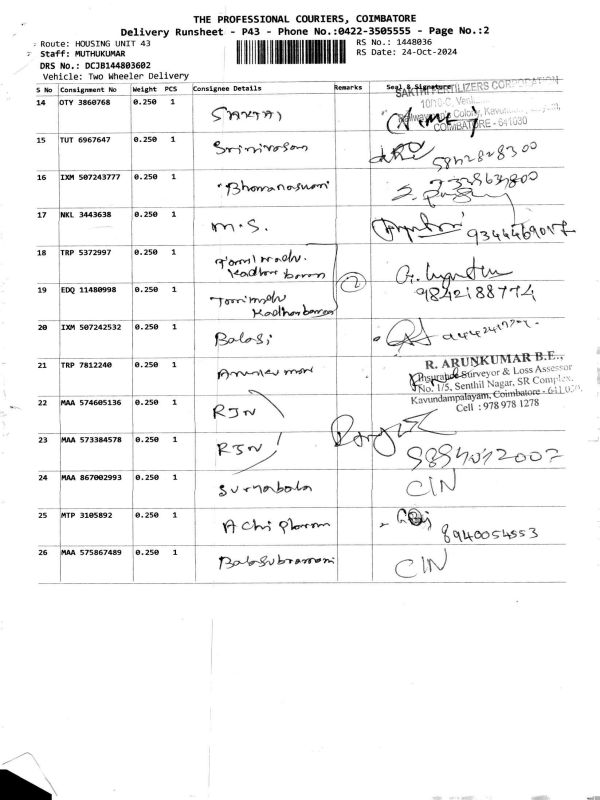 THE PROFESSIONAL COURIERS, COIMBATORE
Delivery Runsheet - P43 - Phone No.:0422-3505555 - Page No.:2
Route: HOUSING UNIT 43
RS No.: 1448036
Staff: MUTHUKUMAR
RS Date: 24-Oct-2024
DRS No.: DCJB144803602
Vehicle: Two Wheeler Delivery
S No Consignment No Weight PCS Consignee Details Remarks Seal & Signature
SAKTHI FERTILIZERS CORPORATION
14 OTY 3860768 0.250 1 SAKTHI
COIMBATORE - 641030
15 TUT 6967647 0.250 1 Srinivasan
5842828300
16 IXM 507243777 0.250 1
17 NKL 3443638 0.250 1 M.S.
9344469017
18 TRP 5372997 0.250 1 Tamilnadu
2
19 EDQ 11480998 0.250 1 Tamilnadu
9842188774
20 IXM 507242532 0.250 1 Balaji
21 TRP 7812240 0.250 1
R. ARUNKUMAR B.E.,
Insurance Surveyor & Loss Assessor
No. 1/5, Senthil Nagar, SR Complex,
Kavundampalayam, Coimbatore - 641 030.
Cell : 978 978 1278
22 MAA 574605136 0.250 1 RJN
23 MAA 573384578 0.250 1 RJN
24 MAA 867002993 0.250 1 Suryabala CIN
25 MTP 3105892 0.250 1
8940054553
26 MAA 575867489 0.250 1 Balasubramani CIN